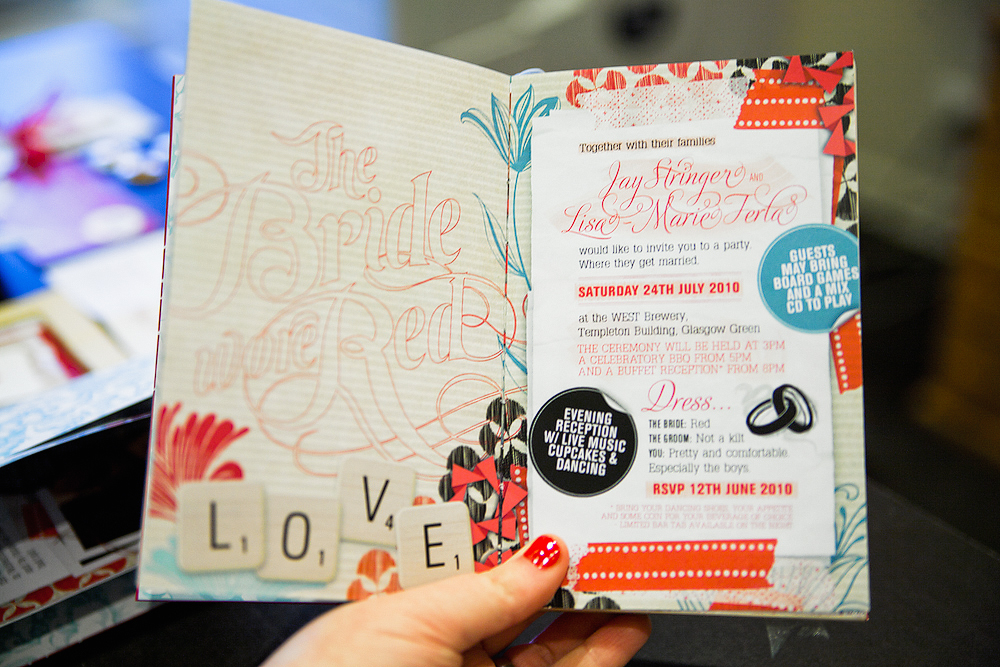 The
Bride
wore
Red
L1 O1 V4 E1
Together with their families
Jay Stringer AND
Lisa-Marie Ferla
would like to invite you to a party.
Where they get married.
SATURDAY 24TH JULY 2010
at the WEST Brewery,
Templeton Building, Glasgow Green
THE CEREMONY WILL BE HELD AT 3PM
A CELEBRATORY BBQ FROM 5PM
AND A BUFFET RECEPTION* FROM 8PM
GUESTS
MAY BRING
BOARD GAMES
AND A MIX
CD TO PLAY
EVENING
RECEPTION
W/ LIVE MUSIC
CUPCAKES &
DANCING
Dress...
THE BRIDE: Red
THE GROOM: Not a kilt
YOU: Pretty and comfortable.
Especially the boys.
RSVP 12TH JUNE 2010
* BRING YOUR DANCING SHOES, YOUR APPETITE
AND SOME COIN FOR YOUR BEVERAGE OF CHOICE
LIMITED BAR TAB AVAILABLE ON THE NIGHT